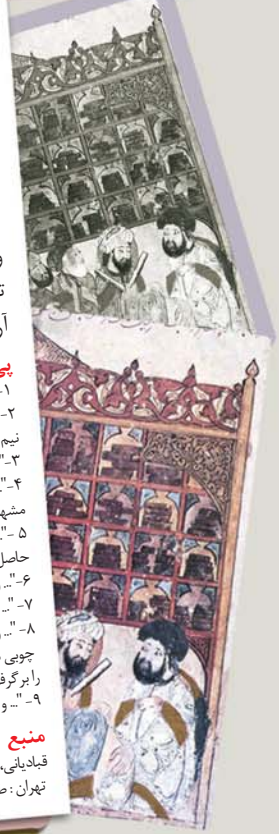 و
ت
آر
پی
۱-
۲-
نیم
۳-"
۴-"..
مشهو
۵ -"..
حاصل
۶-"... و
۷- "...
۸- "... و
چوبی
را برگرف
۹- "... و
منبع
قبادیانی،
تهران: ص